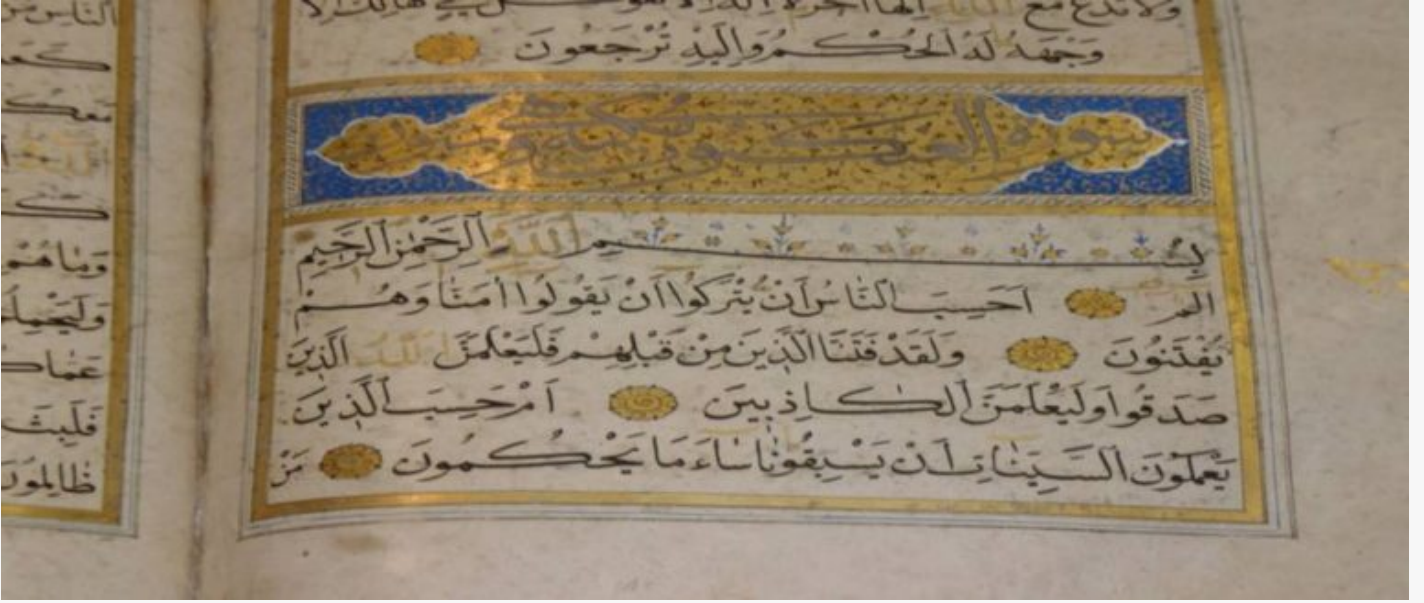 ولا تدع مع الله إلها آخر لا إله إلا هو كل شيء هالك إلا
وَجْهَهُ لَهُ الْحُكْمُ وَاِلَيْهِ تُرْجَعُونَ
سورة العنكبوت
بِسْمِ اللهِ الرَّحْمٰنِ الرَّحِيمِ
الم اَحَسِبَ النَّاسُ اَنْ يُتْرَكُوا اَنْ يَقُولُوا اٰمَنَّا وَهُمْ
يُفْتَنُونَ وَلَقَدْ فَتَنَّا الَّذِينَ مِنْ قَبْلِهِمْ فَلَيَعْلَمَنَّ اللهُ الَّذِينَ
صَدَقُوا وَلَيَعْلَمَنَّ الْكَاذِبِينَ اَمْ حَسِبَ الَّذِينَ
يَعْمَلُونَ السَّيِّئَاتِ اَنْ يَسْبِقُونَا سَاءَ مَا يَحْكُمُونَ مَنْ
النَّاسِ
الله
وَمَا هُمْ
فَلَبِثَ
ظَالِمُونَ